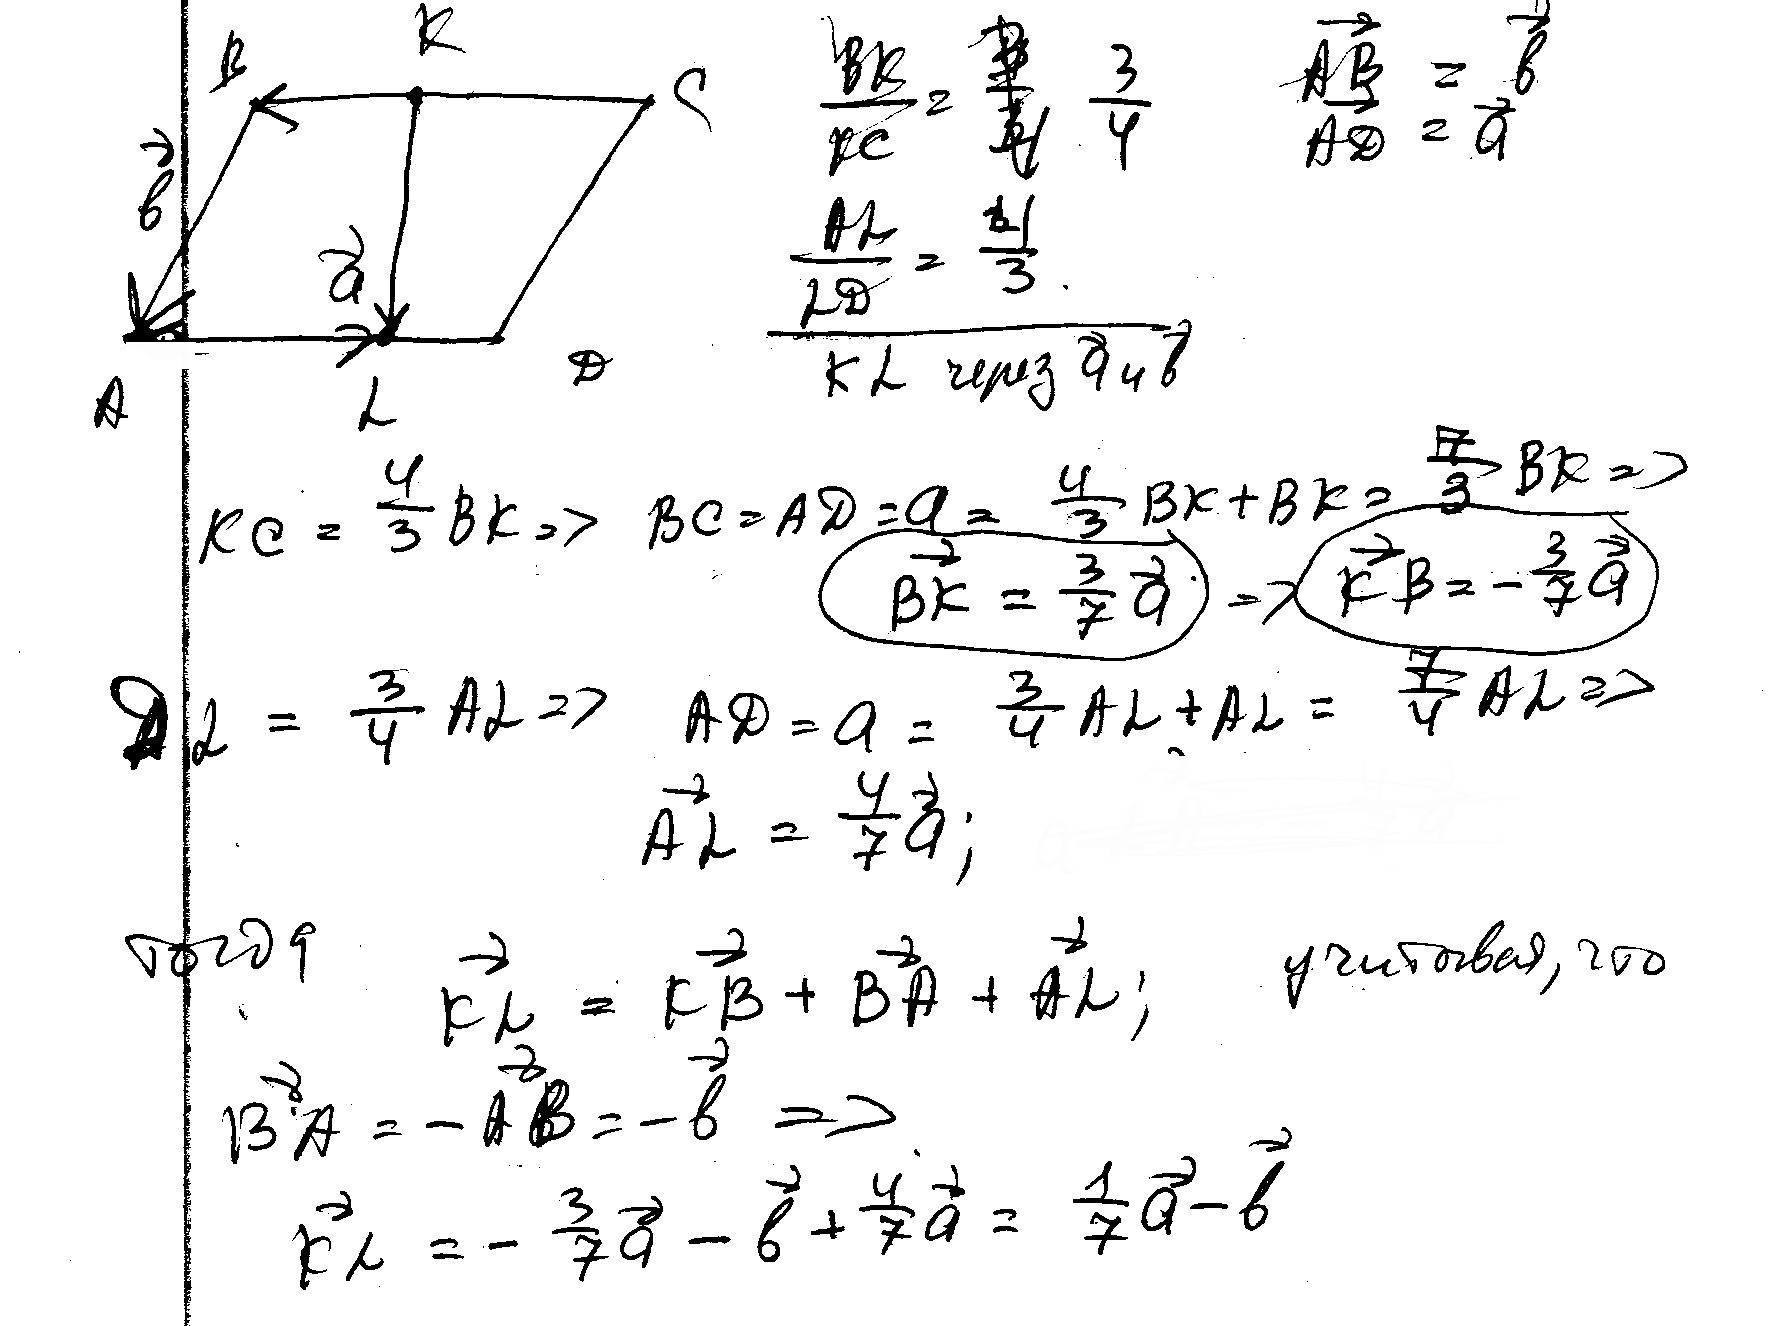 B K C
b⃗
a⃗
A L D
BK/KC = 3/4
AB⃗ = b⃗
AD⃗ = a⃗
AL/LD = 4/3
KL через a⃗ и b⃗
KC = 4/3 BK => BC = AD = a = 4/3 BK + BK = 7/3 BK =>
BK⃗ = 3/7 a⃗ => KB⃗ = - 3/7 a⃗
DL = 3/4 AL => AD = a = 3/4 AL + AL = 7/4 AL =>
AL⃗ = 4/7 a⃗;
тогда KL⃗ = KB⃗ + BA⃗ + AL⃗; учитывая, что
BA⃗ = - AB⃗ = - b⃗ =>
KL⃗ = - 3/7 a⃗ - b⃗ + 4/7 a⃗ = 1/7 a⃗ - b⃗